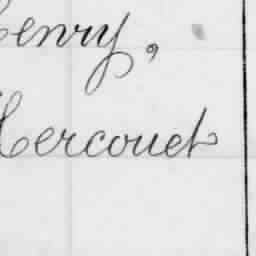 Henry,
Hercouet